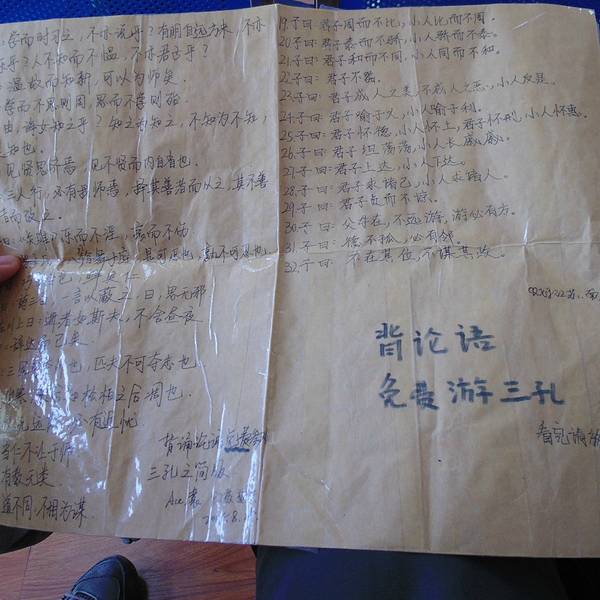 学而时习之，不亦说乎？有朋自远方来，不亦
乐乎？人不知而不愠，不亦君子乎？
温故而知新，可以为师矣。
学而不思则罔，思而不学则殆
由，诲女知之乎？知之为知之，不知为不知，
知也.
见贤思齐焉，见不贤而内自省也.
三人行，必有我师焉，择其善者而从之，其不善
者而改之.
乐而不淫，哀而不伤
是可忍也，孰不可忍也.
一言以蔽之，曰，思无邪
川上曰：逝者如斯夫，不舍昼夜
匹夫不可夺志也.
松柏之后凋也.
当仁不让于师
有教无类.
道不同，不相为谋.
背诵论语免费游
三孔之简版
19.子曰：君子周而不比，小人比而不周。
20.子曰：君子泰而不骄，小人骄而不泰。
21.子曰：君子和而不同，小人同而不和。
22.子曰：君子不器。
23.子曰：君子成人之美，不成人之恶，小人反是。
24.子曰：君子喻于义，小人喻于利。
25.子曰：君子怀德，小人怀土，君子怀刑，小人怀惠。
26.子曰：君子坦荡荡，小人长戚戚。
27.子曰：君子上达，小人下达。
28.子曰：君子求诸己，小人求诸人。
29.子曰：君子贞而不谅。
30.子曰：父母在，不远游，游必有方。
31.子曰：德不孤，必有邻。
32.子曰：不在其位，不谋其政。
背论语
免费游三孔
看完请放